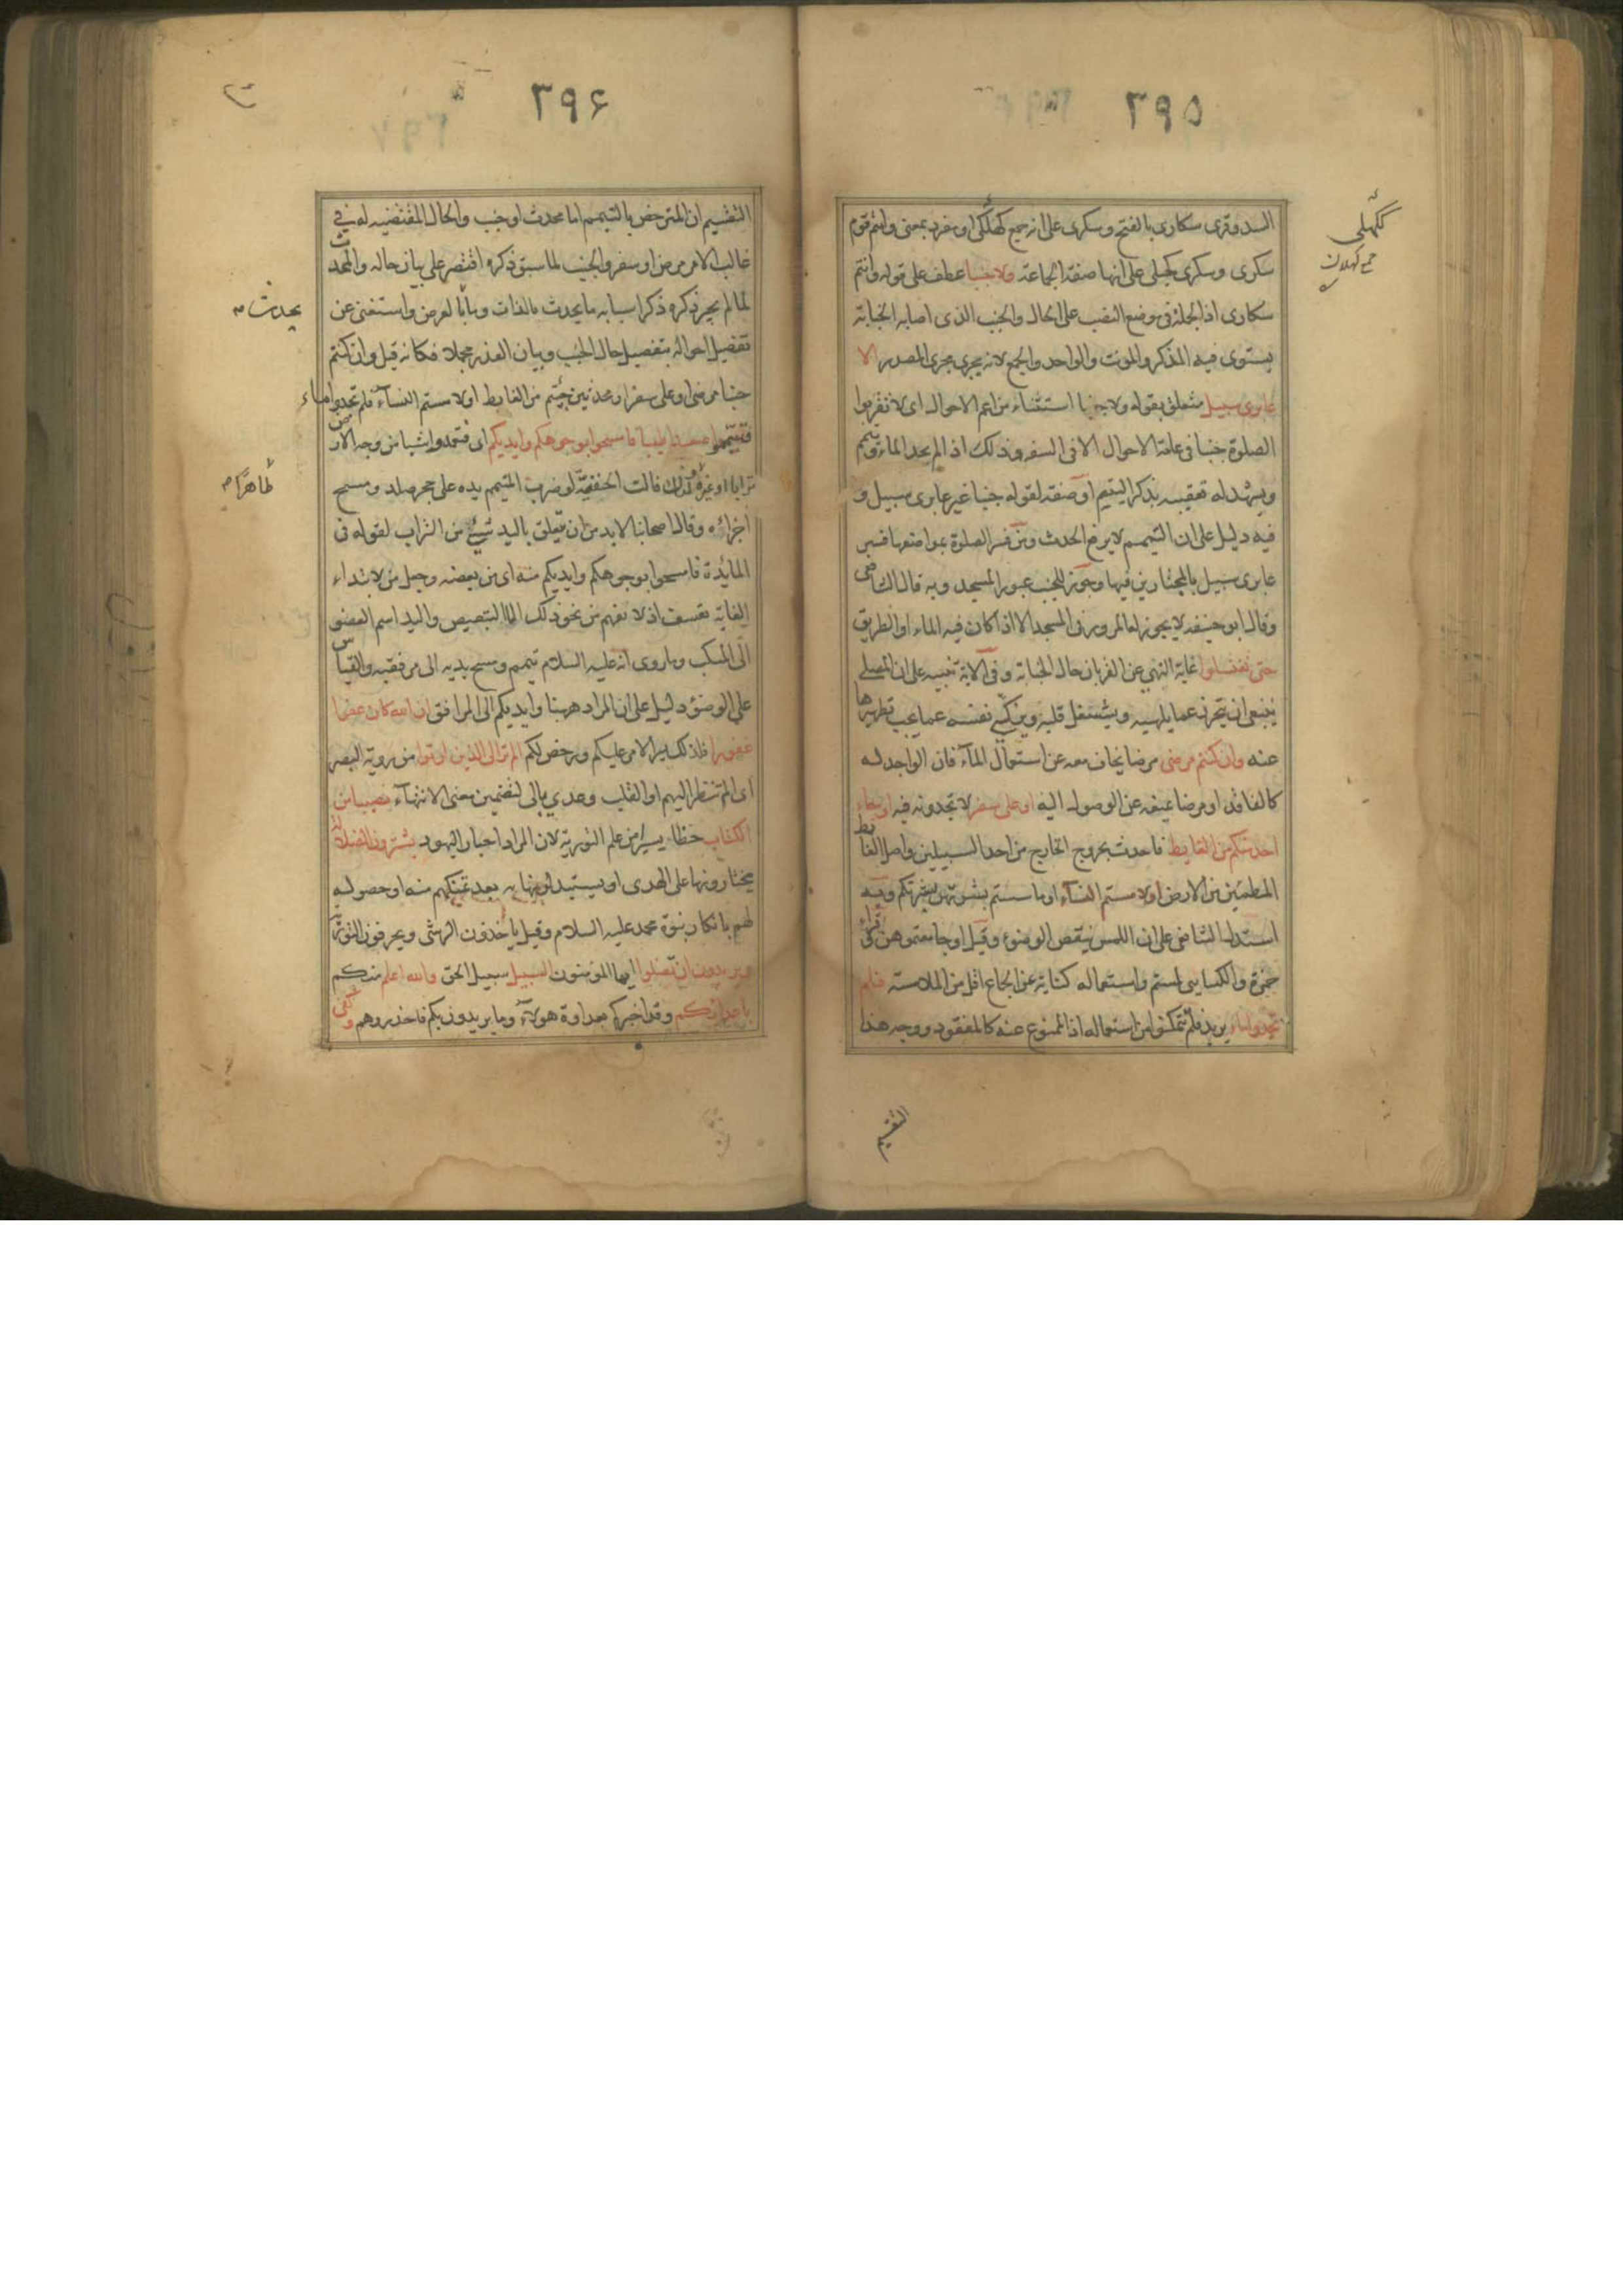 ٣٩٥
السد وقرى سكارى بالفتح وسكرى على انه جمع كهلكى او مفرد بمعنى وانتم قوم
سكرى وسكرى كحبلى على انها صفة الجماعة ولا جنبا عطف على قوله وانتم
سكارى اذ الجملة فى موضع النصب على الحال والجنب الذى اصابه الجنابة
يستوى فيه المذكر والمونث والواحد والجمع لانه يجرى مجرى المصدر الا
عابرى سبيل متعلق بقوله ولا جنبا استثناء من اعم الاحوال اى لا تقربوا
الصلوة جنبا فى عامة الاحوال الا فى السفر وذلك اذا لم يجد الماء وتيمم
ويشهد له تعقيبه بذكر التيمم او صفة لقوله جنبا غير عابرى سبيل و
فيه دليل على ان التيمم لا يرفع الحدث ومن فسر الصلوة بمواضعها فسر
عابرى سبيل بالمجتازين فيها وجوز للجنب عبور المسجد وبه قال الشافعى
وقال ابو حنيفه لا يجوز له المرور فى المسجد الا اذا كان فيه الماء او الطريق
حتى تغتسلوا غاية النهى عن القربان حال الجنابة وفى الاية تنبيه على ان المصلى
ينبغى ان يتحرز عما يلهيه ويشغل قلبه ويزكى نفسه عما يجب تطهيرها
عنه وان كنتم مرضى مرضا يخاف معه عن استعمال الماء فان الواجد له
كالفاقد او مرضا يمنعه عن الوصول اليه او على سفر لا تجدونه فيه او جاء
احد منكم من الغايط فاحدث بخروج الخارج من احد السبيلين واصل الغايط
المطمئن من الارض اولا مستم النساء او ماسستم بشرتهن ببشرتكم وبه
استدل الشافعى على ان اللمس ينقض الوضوء وقيل او جامعتموهن وقرأ
حمزة والكسايى لمستم واستعماله كناية عن الجماع اقل من الملامسة فلم
تجدوا ماء يريد فلم تتمكنوا من استعماله اذ الممنوع عنه كالمفقود ووجه هذا
التقسيم
٣٩۶
التقسيم ان المترخص بالتيمم اما محدث او جنب والحال المقتضيه له فى
غالب الامر مرض او سفر والجنب لما سبق ذكره اقتصر على بيان حاله والمحدث
لما لم يجر ذكره ذكر اسبابه ما يحدث بالذات وما بالعرض واستغنى عن
تفصيل احواله بتفصيل حال الجنب وبيان العذر مجملا فكانه قيل وان كنتم
جنبا مرضى او على سفر او محدثين جئتم من الغايط او لا مستم النساء فلم تجدوا ماء
فتيمموا صعيدا طيبا فامسحوا بوجوهكم وايديكم اى فتعمدوا شيا من وجه الارض
يحدث
طاهرا
ترابا او غيره ولذلك قالت الحنفية لو ضرب المتيمم يده على حجر صلد ومسح
اجزاءه وقال اصحابنا لا بد من ان يتعلق باليد شيئ من التراب لقوله فى
المايدة فامسحوا بوجوهكم وايديكم منه اى من بعضه وجعل من لابتداء
الغاية تعسف اذ لا تفهم من نحو ذلك الا التبعيض واليد اسم العضو
الى المنكب وما روى انه عليه السلام تيمم ومسح يديه الى مرفقيه والقياس
على الوضوء دليل على ان المراد ههنا وايديكم الى المرافق ان الله كان عفوا
غفورا فلذلك يسر الامر عليكم ورخص لكم الم تر الى الذين اوتوا من روية البصر
اى الم تنظر اليهم او القلب وعدى بالى لتضمين معنى الانتهاء نصيبا من
الكتاب حظا يسيرا من علم التورية لان المراد احبار اليهود يشترون الضلالة
يختارونها على الهدى او يستبدلونها به بعد تمكنهم منه او حصوله
لهم بانكار نبوة محمد عليه السلام وقيل ياخذون الرشى ويحرفون التورية
ويريدون ان تضلوا ايها المومنون السبيل سبيل الحق والله اعلم منكم
باعدائكم وقد اخبركم بعداوة هولاء وما يريدون بكم فاحذروهم وكفى